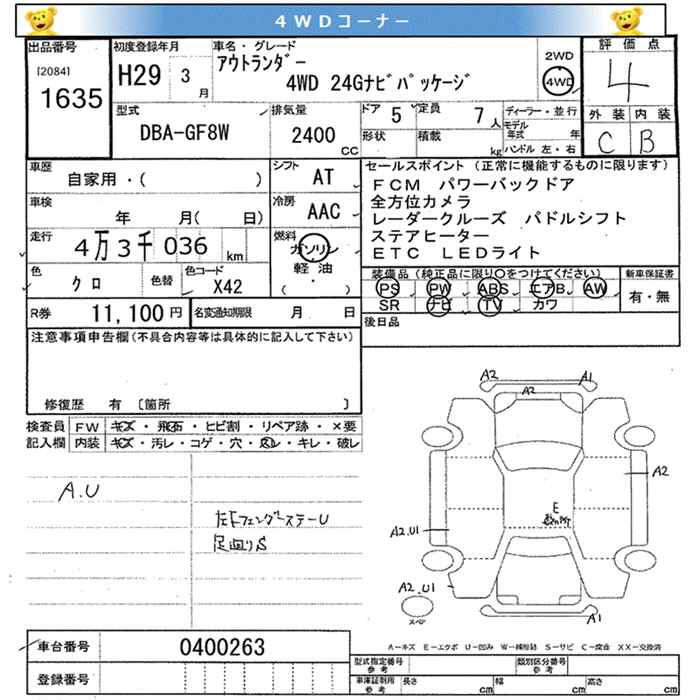 4WDコーナー
出品番号
[2084]
1635
初度登録年月
H29 3月
車名・グレード
アウトランダー
4WD 24Gナビパッケージ
2WD
4WD
評価点
4
外装 内装
C B
型式
DBA-GF8W
排気量
2400
CC
ドア 5
形状
定員 7人
積載 kg
ディーラー・並行
モデル年式 年
ハンドル 左・右
車歴
自家用・( )
車検
年 月( 日)
走行
4万3千036 km
色
クロ
色替
色コード
X42
シフト
AT
冷房
AAC
燃料
ガソリン
軽油
( ・ )
セールスポイント (正常に機能するものに限ります)
FCM パワーバックドア
全方位カメラ
レーダークルーズ パドルシフト
ステアヒーター
ETC LEDライト
装備品(純正品に限り○をつけてください)
PS PW ABS エアB AW
SR ナビ TV カワ
新車保証書
有・無
後日品
R券 11,100円
名変通知期限 月 日
注意事項申告欄(不具合内容等は具体的に記入して下さい)
修復歴 有 [箇所 ]
検査員記入欄
FW キズ・飛石・ヒビ割・リペア跡・×要
内装 キズ・汚レ・コゲ・穴・凹レ・キレ・破レ
A.U
左F フェンダーステーU
足廻りS
A2
A1
A2
A2
E
A2.U1
A2.U1
A1
スペア
A-キズ E-エクボ U-凹み W-補修跡 S-サビ C-腐食 XX-交換済
車台番号 0400263
登録番号
型式指定番号
参考
類別区分番号
参考
車庫証明用
参考
長さ cm
幅 cm
高さ cm